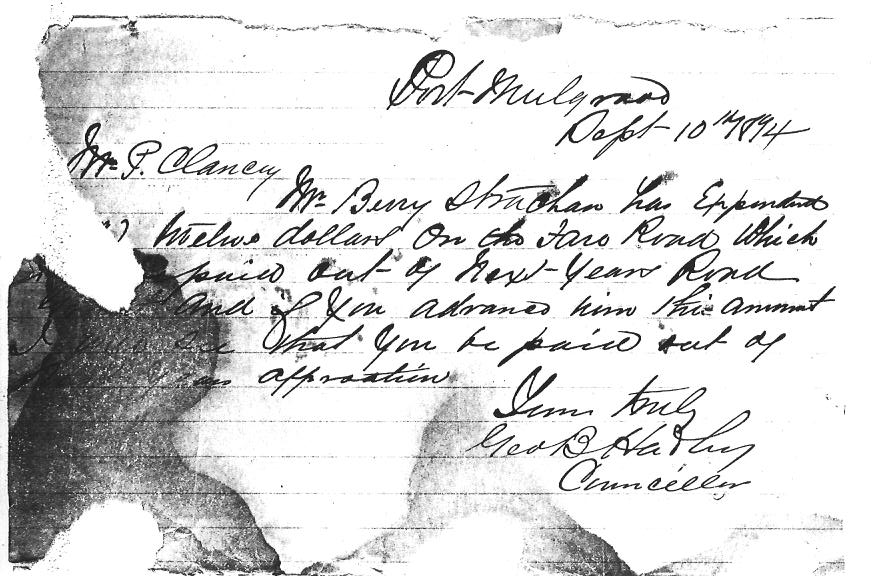 Port Mulgrave
Sept 10th 1894
Mr. P. Clancy
Mr Berry Strachan has Expended
twelve dollars On the Road Which
paid out of Next Years Road
And if You advance him this amount
I see that You be paid out of
Yours truly
Geo B Hadley
Councillor